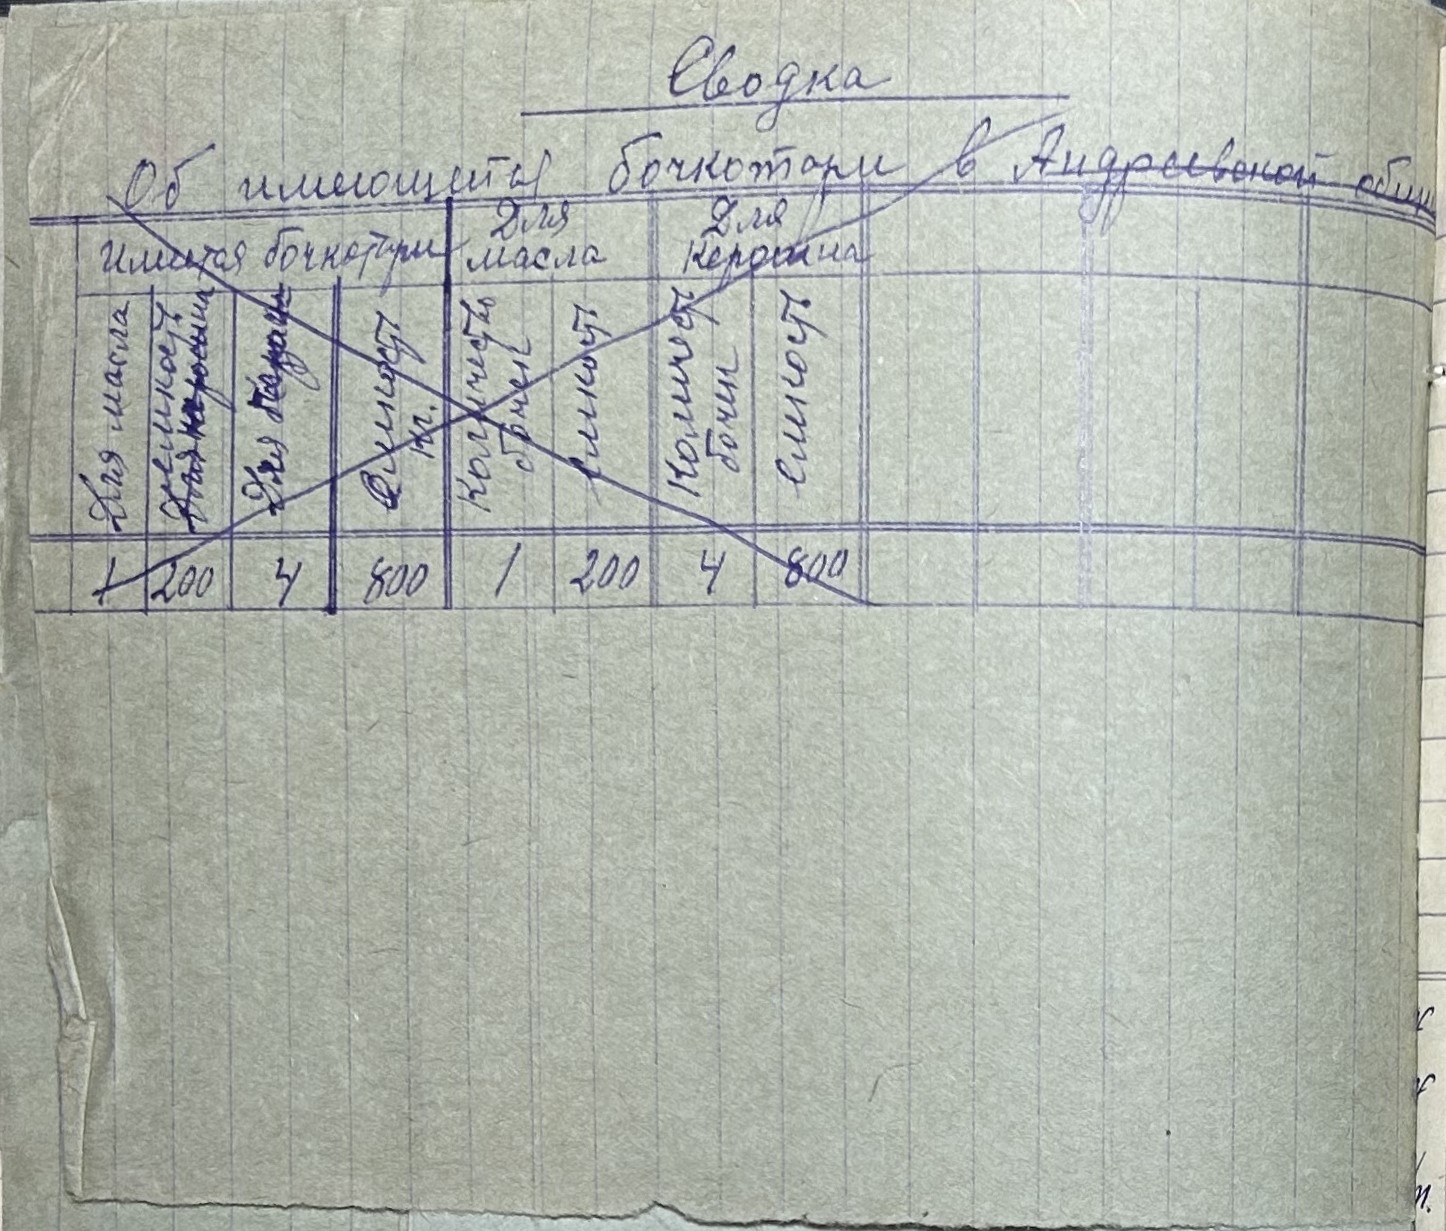 Сводка
Об имеющейся бочкотары в Андреевской общ
Имеется бочкотары
Для масла
Для Керосина
Для масла
емкость Для керосина
Для
Емкость кг.
Количество бочек
емкость
Количест бочек
емкость
1 200 4 800 1 200 4 800